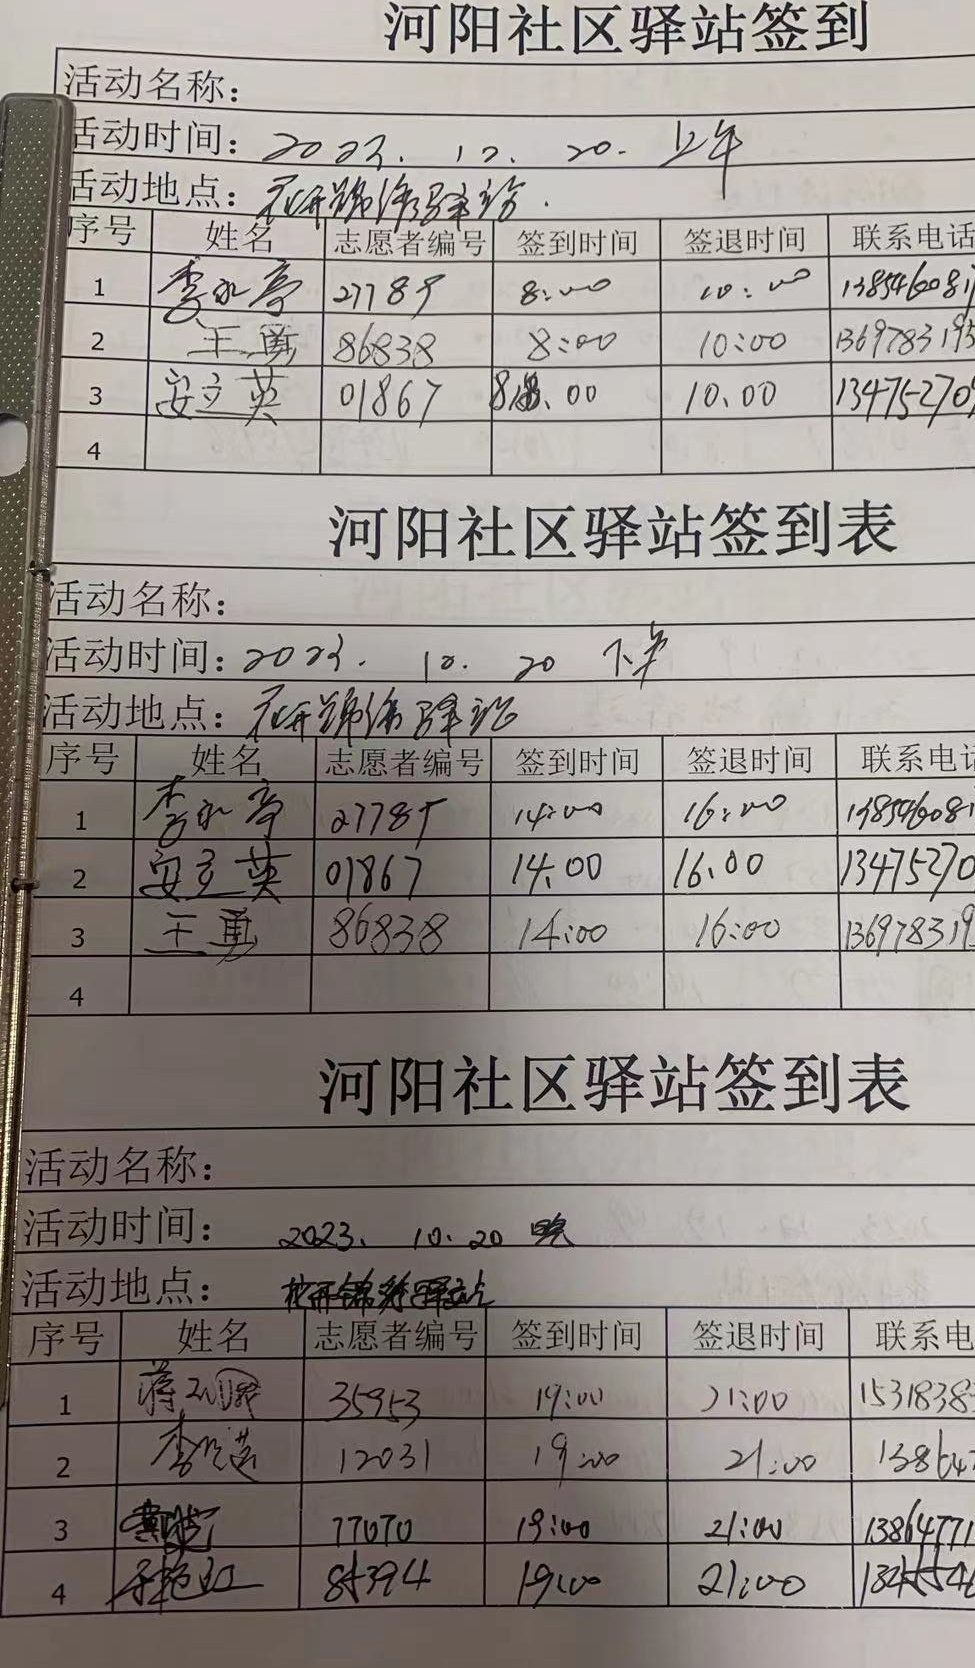 河阳社区驿站签到
活动名称：
活动时间：2023. 10. 20. 上午
活动地点：花开锦绣驿站.
序号 姓名 志愿者编号 签到时间 签退时间 联系电话
1 李永亭 27789 8:00 10:00
2 王勇 86838 8:00 10:00 136978319
3 安立英 01867 00 10.00 13475270
4
河阳社区驿站签到表
活动名称：
活动时间：2023. 10. 20 下午
活动地点：花开锦绣驿站
序号 姓名 志愿者编号 签到时间 签退时间 联系电话
1 李永亭 27789 14:00 16:00
2 安立英 01867 14.00 16.00 13475270
3 王勇 86838 14:00 16:00 136978319
4
河阳社区驿站签到表
活动名称：
活动时间：2023. 10. 20 晚
活动地点：花开锦绣驿站
序号 姓名 志愿者编号 签到时间 签退时间 联系电
1 35953 19:00 21:00 1531838
2 12031 19:00 21:00 13864
3 77070 19:00 21:00 13864771
4 85394 19:00 21:00